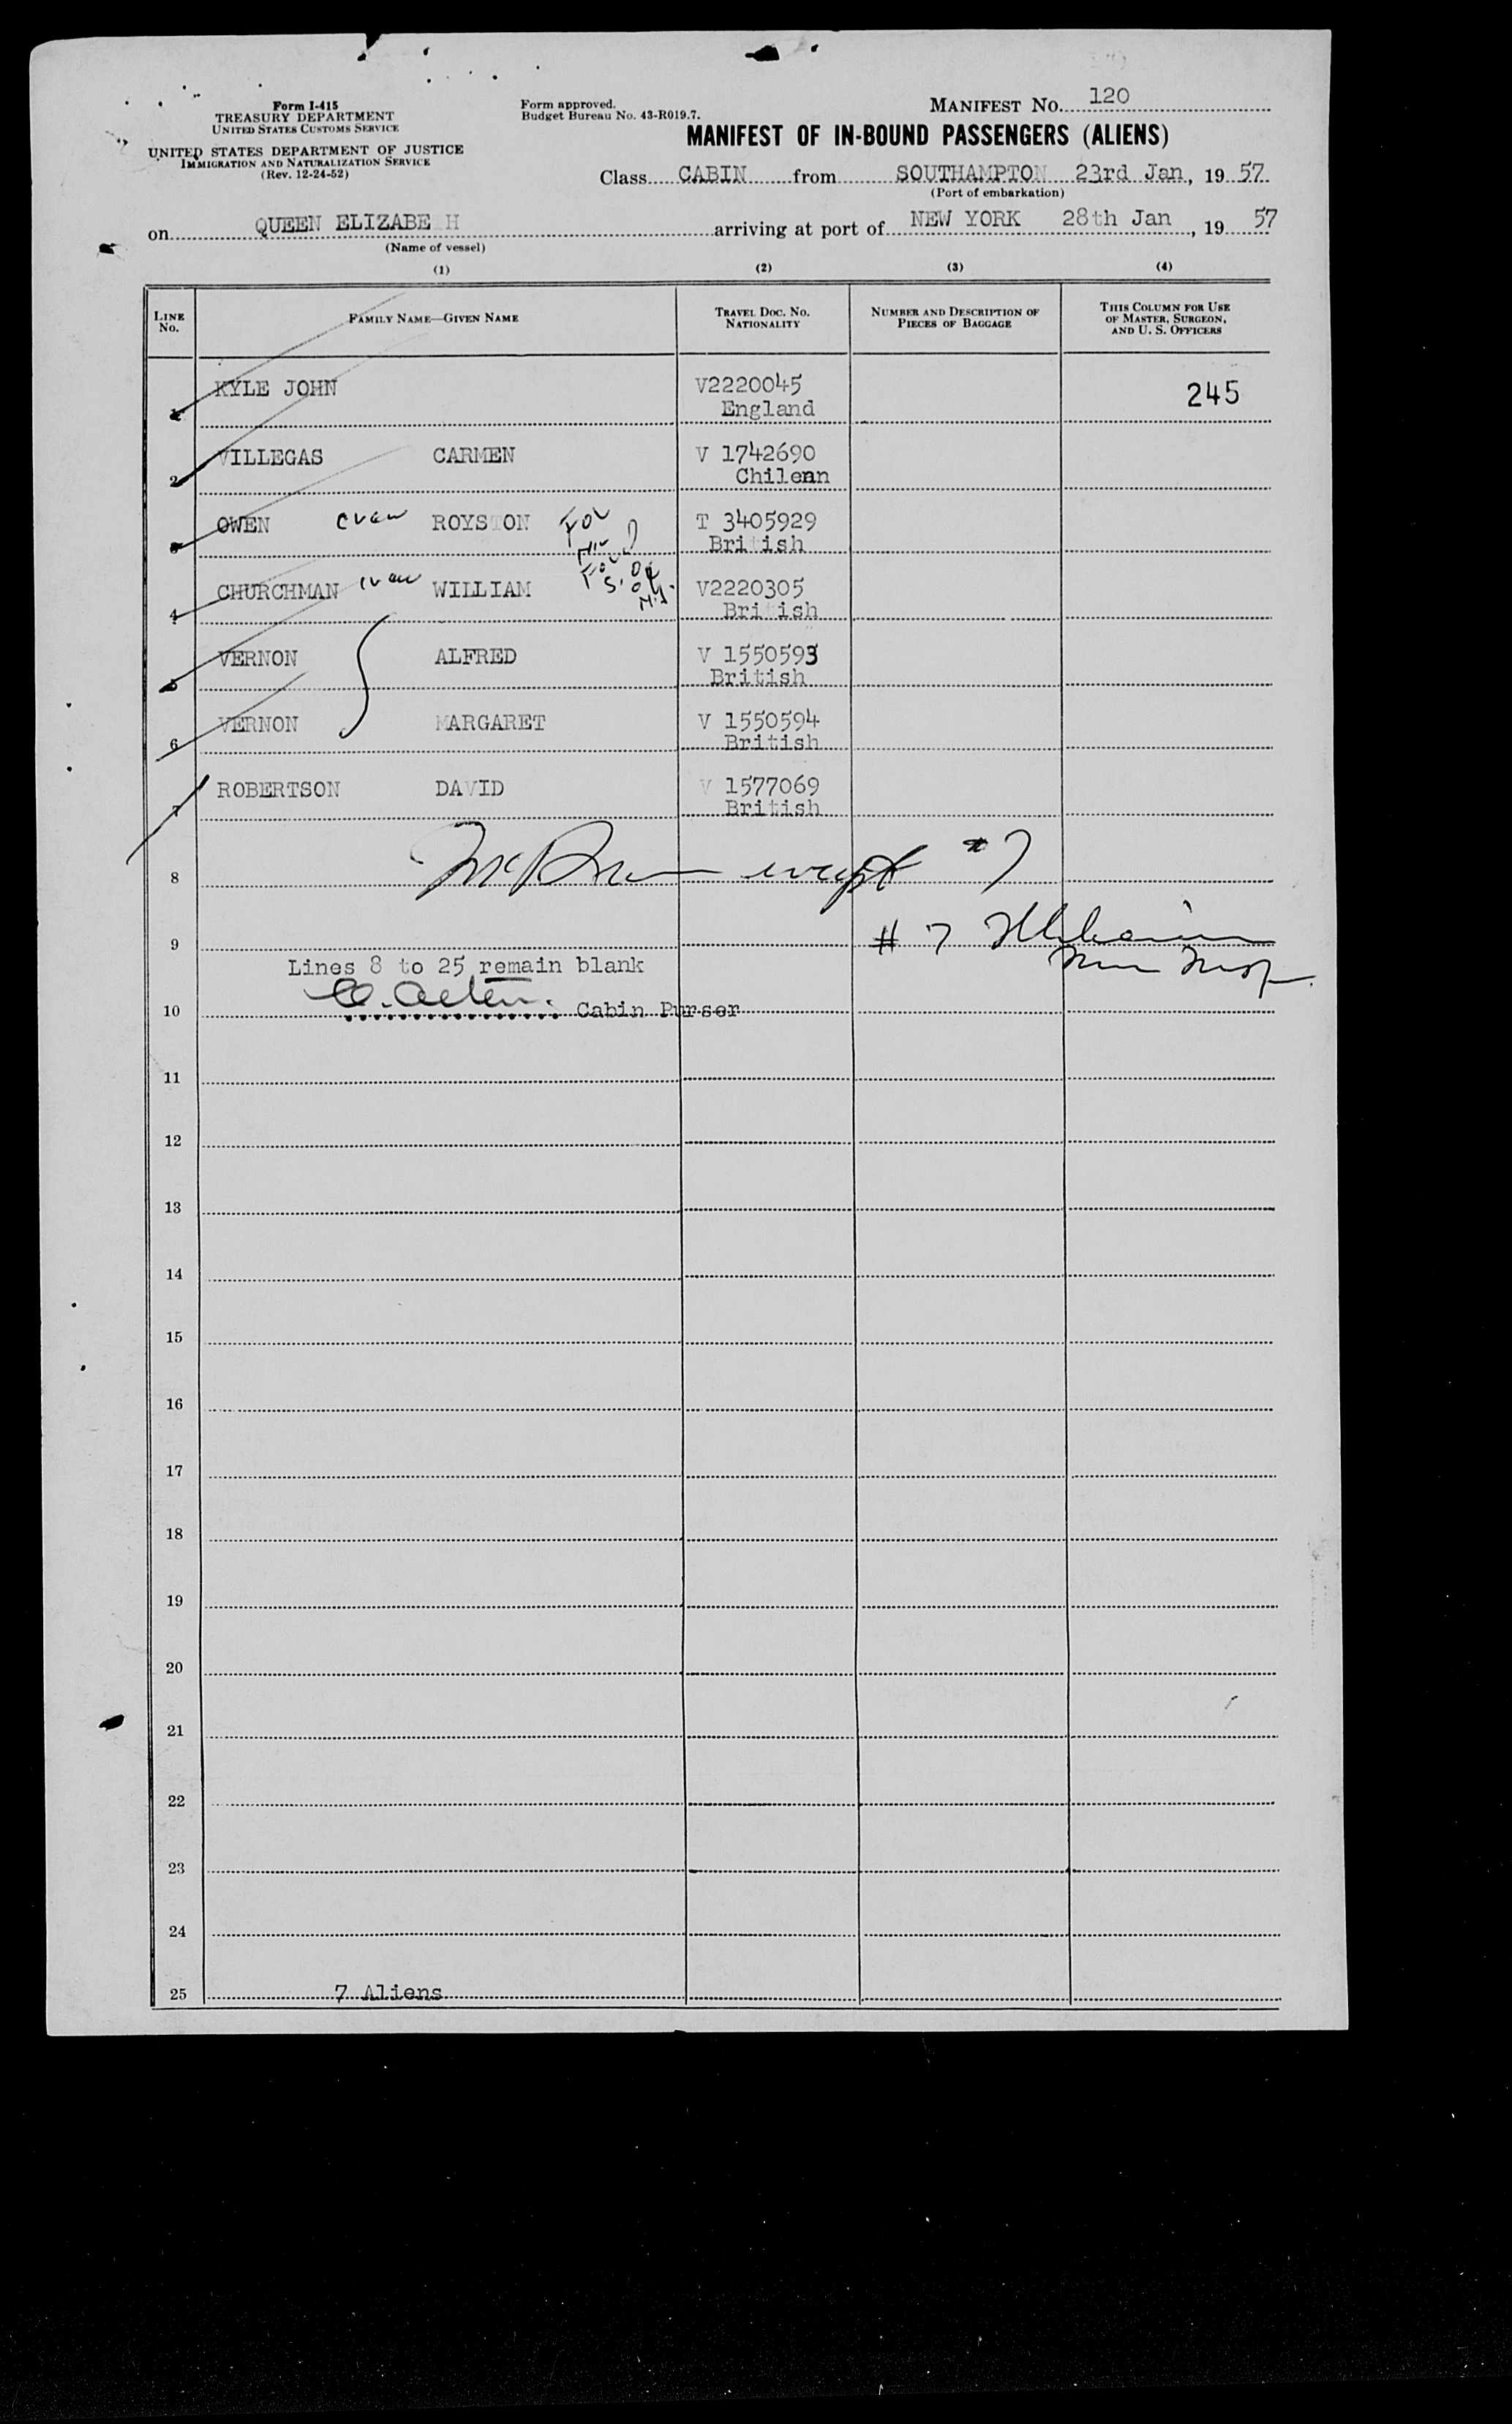 Form I-415
TREASURY DEPARTMENT
UNITED STATES CUSTOMS SERVICE
UNITED STATES DEPARTMENT OF JUSTICE
IMMIGRATION AND NATURALIZATION SERVICE
(Rev. 12-24-52)
Form approved.
Budget Bureau No. 43-R019.7.
MANIFEST No. 120
MANIFEST OF IN-BOUND PASSENGERS (ALIENS)
Class CABIN from SOUTHAMPTON 23rd Jan, 19 57
(Port of embarkation)
on QUEEN ELIZABE H arriving at port of NEW YORK 28th Jan, 19 57
(Name of vessel)
(1) (2) (3) (4)
LINE No. FAMILY NAME—GIVEN NAME TRAVEL DOC. NO. NATIONALITY NUMBER AND DESCRIPTION OF PIECES OF BAGGAGE THIS COLUMN FOR USE OF MASTER, SURGEON, AND U. S. OFFICERS
1 KYLE JOHN V2220045 245
England
2 VILLEGAS CARMEN V 1742690
Chilean
3 OWEN crew ROYSTON T 3405929
British
4 CHURCHMAN crew WILLIAM V2220305
British
5 VERNON ALFRED V 1550593
British
6 VERNON MARGARET V 1550594
British
7 ROBERTSON DAVID V 1577069
British
8 except #7
9 # 7
Lines 8 to 25 remain blank
10 Cabin Purser
11
12
13
14
15
16
17
18
19
20
21
22
23
24
25 7 Aliens